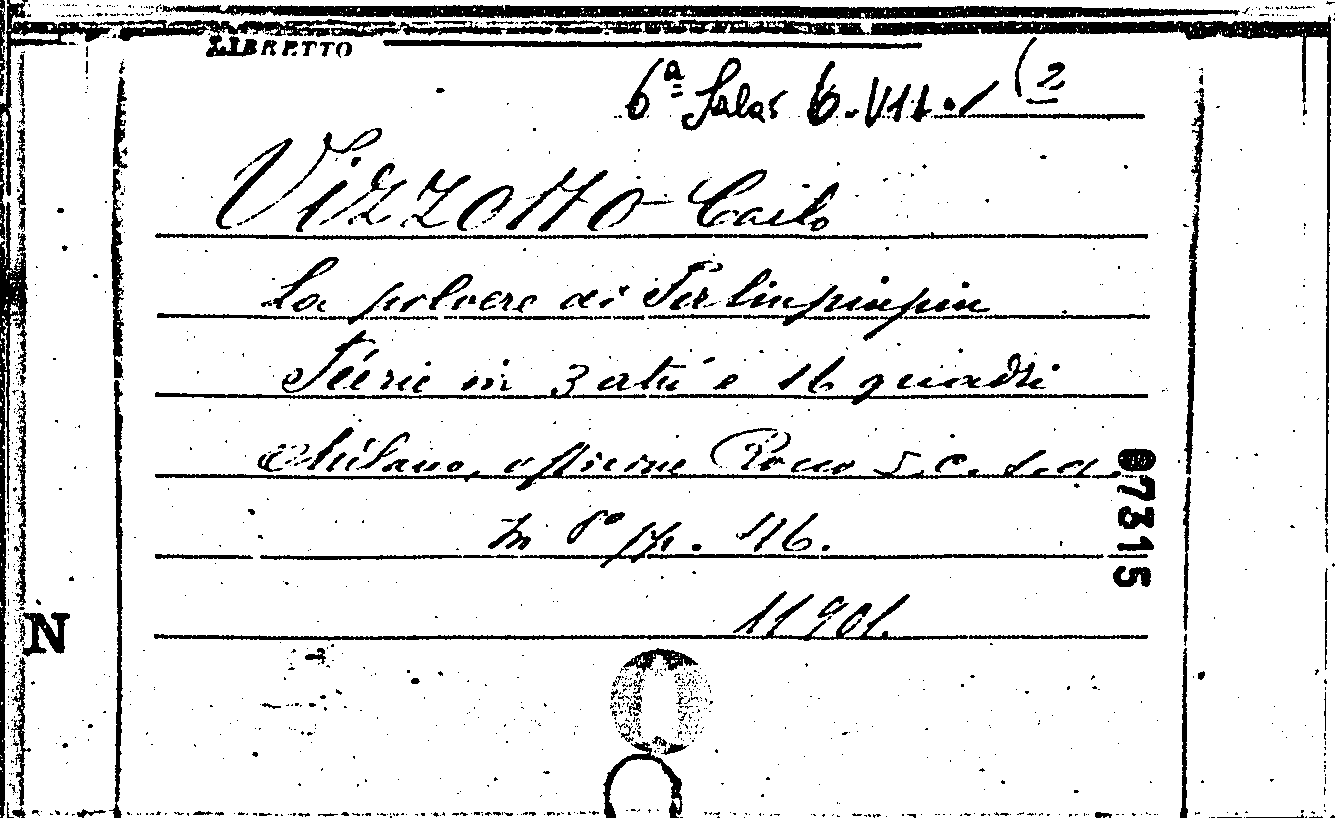 LIBRETTO
6ª Sala 6.VII.1 (2
VIZZOTTO Carlo
La polvere di Perlinpinpin
Féerie in 3 atti e 16 quadri
Milano, officine Rocco s.c. s.a.
In 8° pp. 46.
11901.
07315
N